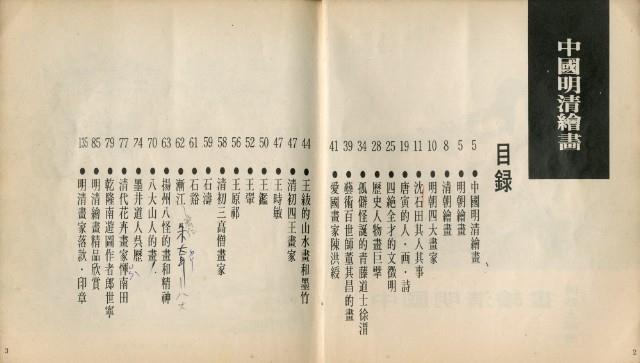 中國明清繪畫
目錄
5 ●中國明清繪畫
5 ●明朝繪畫
8 ●清朝繪畫
10 ●明朝四大畫家
11 ●沈石田其人其事
19 ●唐寅的人・画・詩
25 ●四絶全才的文徵明
28 ●歷史人物畫巨擘
34 ●孤僻怪誕的青藤道士徐渭
39 ●藝術百世師董其昌的畫
41 ●愛國畫家陳洪綬
2
44 ●王紱的山水畫和墨竹
47 ●清初四王畫家
47 ●王時敏
50 ●王鑑
52 ●王翬
56 ●王原祁
58 ●清初三高僧畫家
59 ●石濤
61 ●石谿
62 ●漸江
63 ●揚州八怪的畫和精神
70 ●八大山人的畫
74 ●墨井道人吳歷
77 ●清代花卉畫家惲南田
79 ●乾隆南遊圖作者郎世寧
85 ●明清繪畫精品欣賞
135 ●明清畫家落款・印章
3